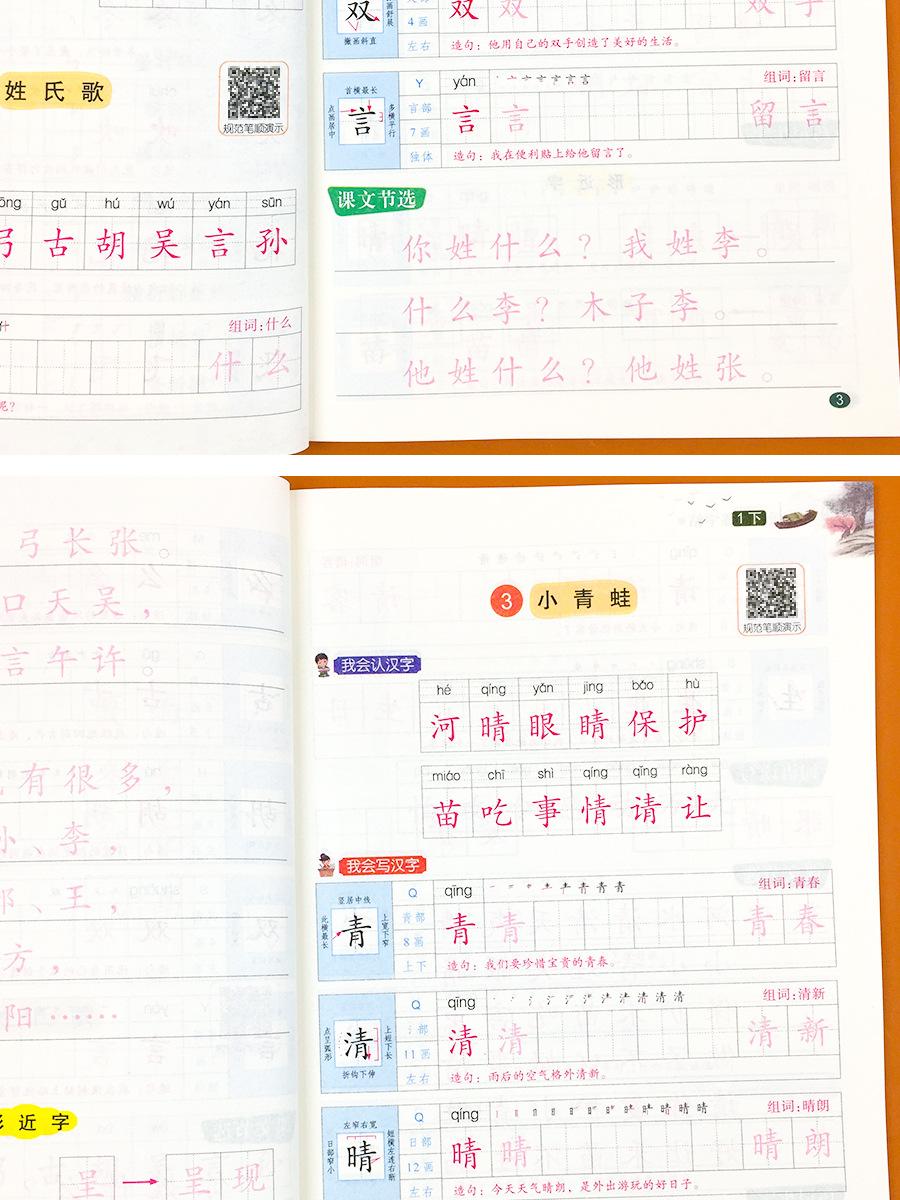 双
4画
撇画斜直
左右
双 双
双 手
造句：他用自己的双手创造了美好的生活。
姓氏歌
规范笔顺演示
首横最长
点画居中
言
多横平行
Y
言部
7画
独体
yán
组词：留言
言 言
留 言
造句：我在便利贴上给他留言了。
gǔ hú wú yán sūn
弓 古 胡 吴 言 孙
组词：什么
什 么
呢？
课文节选
你姓什么？我姓李。
什么李？木子李。
他姓什么？他姓张。
3
弓长张。
口天吴，
言午许。
有很多，
孙、李，
王，
方，
阳……
形近字
呈 → 呈 现
1下
3 小青蛙
规范笔顺演示
我会认汉字
hé qíng yǎn jīng bǎo hù
河 晴 眼 睛 保 护
miáo chī shì qíng qǐng ràng
苗 吃 事 情 请 让
我会写汉字
竖居中线
此横最长
青
上宽下窄
Q
青部
8画
上下
qīng
组词：青春
青 青
青 春
造句：我们要珍惜宝贵的青春。
点呈弧形
清
上短下长
折钩下伸
Q
氵部
11画
左右
qīng
组词：清新
清 清
清 新
造句：雨后的空气格外清新。
左窄右宽
日部窄小
晴
短横左连右断
Q
日部
12画
左右
qíng
组词：晴朗
晴 晴
晴 朗
造句：今天天气晴朗，是外出游玩的好日子。